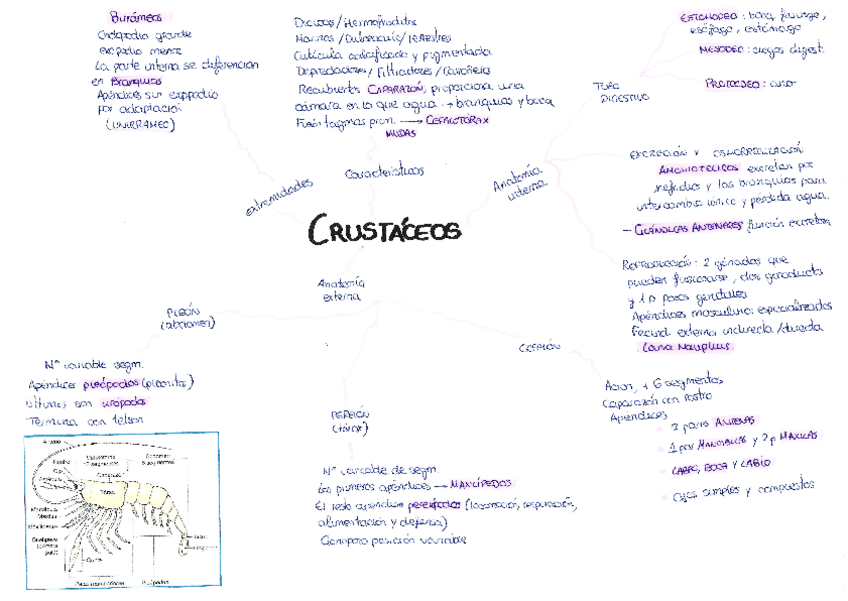 Birrámeos
Endopodio grande
exopodio menor
La parte interna se diferencian
en Branquias
Apéndices sin exopodio
por adaptación
(UNIRRÁMEO)
extremidades
Dioicos/Hermafroditas
Marinos/Dulceacuíc/terrestres
Cutícula calcificada y pigmentada
Depredadores/Filtradores/Carroñeros
Recubiertos CAPARAZÓN, proporciona una
cámara en la que agua → branquias y boca
Fusión tagmas prin. → CEFALOTÓRAX
MUDAS
Características
Anatomía
interna
TUBO
DIGESTIVO
ESTOMODEO: boca, faringe,
esófago, estómago
MESODEO: ciegos digest.
PROTODEO: ano
EXCRECIÓN Y OSMORREGULACIÓN
AMONIOTÉLICOS excretan por
nefridios y las branquias para
intercambio iónico y pérdida agua.
- GLÁNDULAS ANTENARES función excretora
REPRODUCCIÓN: 2 gónadas que
pueden fusionarse, dos gonoductos
y 1 o 2 poros genitales
Apéndices masculinos especializados
Fecund. externa indirecta/directa
Larva Nauplius
CRUSTÁCEOS
Anatomía
externa
PLEÓN
(abdomen)
Nº variable segm.
Apéndices pleópodos (pleonitos)
últimos son urópodos
Termina con telson
PEREIÓN
(tórax)
Nº variable de segm.
Los primeros apéndices → MAXILÍPEDOS
El resto apéndices pereiópodos (locomoción, respiración,
alimentación y defensa)
Gonoporo posición variable
CEFALÓN
Acron, + 6 segmentos
Caparazón con rostro
Apéndices
2 pares ANTENAS
1 par MANDÍBULAS y 2 p MAXILAS
LABRO, BOCA Y LABIO
Ojos simples y compuestos
Tórax
Pleópodos